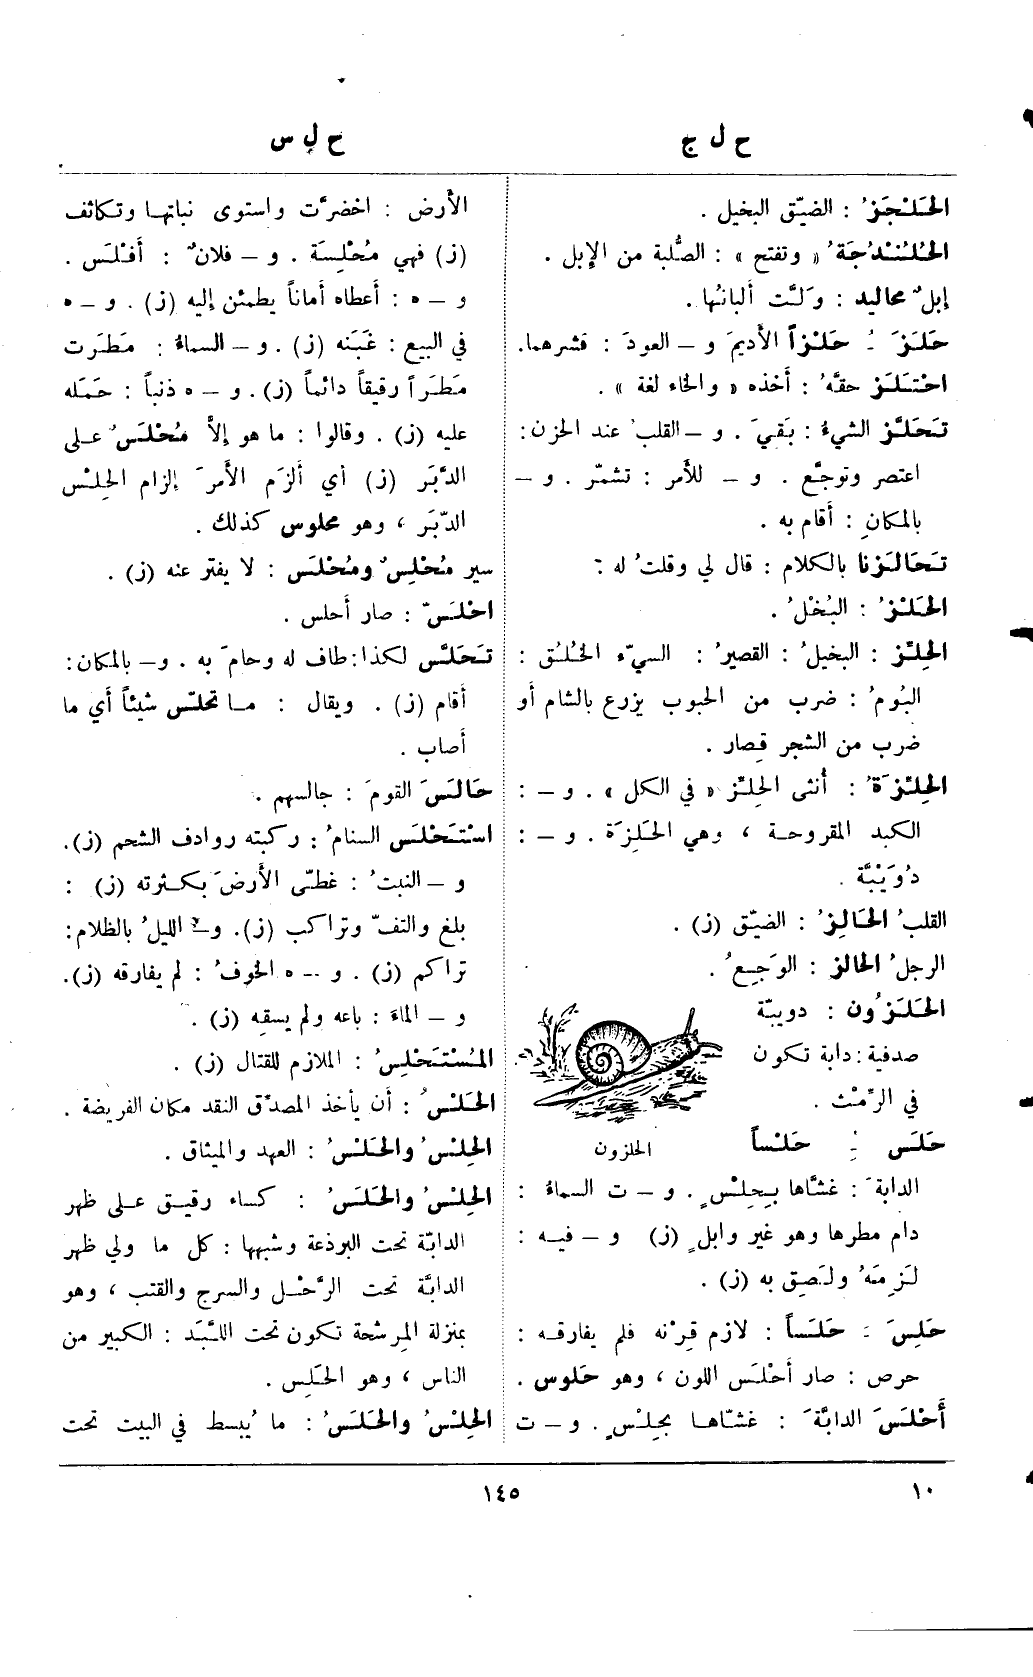 ح ل ج
ح ل س
الحَلْجَزُ : الضيّق البخيل .
الحُلُنْدُجَةُ « وتفتح » : الصُّلبة من الإبل .
إبلٌ محاليد : وَلَّت ألبانُها .
حَلَزَ ـُ حَلْزاً الأديمَ و ــ العودَ : قشرهما.
احْتَلَزَ حقَّهُ : أخذه « والخاء لغة » .
تَحَلَّزَ الشيءُ : بَقيَ . و ــ القلبُ عند الحزن :
اعتصر وتوجَّع . و ــ للأمر : تشمّر . و ــ
بالمكانِ : أقام به .
تَحَالَزْنا بالكلام : قال لي وقلتُ له :
الحَلْزُ : البُخْلُ .
الحِلِّز : البخيلُ : القصيرُ : السيّء الخُلُق :
البُومُ : ضرب من الحبوب يزرع بالشام أو
ضرب من الشجر قِصار .
الحِلِّزَةُ : أنثى الحِلِّز « في الكل » . و ــ :
الكبد المقروحة ، وهي الحَلِزَة . و ــ :
دُوَيْبَّة .
القلبُ الحَالِزُ : الضيّق (ز) .
الرجلُ الحالز : الوَجِيعُ .
الحَلَزُون : دويبّة
صدفية : دابة تكون
في الرِّمْث .
الحلزون
حَلَس ـِ حَلْساً
الدابةَ : غشّاها بِحِلْسٍ . و ــ ت السماءُ :
دام مطرها وهو غير وابلٍ (ز) و ــ فيه :
لَزِمَهُ ولَصِق به (ز) .
حَلِسَ ـَ حَلَساً : لازم قِرْنه فلم يفارقه :
حرص : صار أحْلَس اللون ، وهو حَلوس .
أَحْلَسَ الدابَّةَ : غشّاها بحِلْسٍ . و ــ ت
الأرض : اخضرَّت واستوى نباتها وتكاثف
(ز) فهي مُحْلِسَة . و ــ فلانٌ : أفْلَس .
و ــ ه : أعطاه أماناً يطمئن إليه (ز) . و ــ ه
في البيع : غَبَنه (ز) . و ــ السماءُ : مَطَرَت
مَطَراً رقيقاً دائماً (ز) . و ــ ه ذنباً : حَمَله
عليه (ز) . وقالوا : ما هو إلاّ مُحْلَسٌ على
الدَّبَر (ز) أي أُلزَم الأمرَ إلزام الحِلْس
الدّبَر ، وهو محلوس كذلك .
سير مُحْلِسٌ ومُحْلَس : لا يفتر عنه (ز) .
احْلَسّ : صار أحلس .
تَحَلَّس لكذا : طاف له وحامَ به . و ــ بالمكان :
أقام (ز) . ويقال : ما تحلّس شيئاً أي ما
أصاب .
حَالَسَ القومَ : جالسهم .
اسْتَحْلَس السنامُ : ركبته روادف الشحم (ز).
و ــ النبتُ : غطّى الأرضَ بكثرته (ز) :
بلغ والتفّ وتراكب (ز). و ــ الليلُ بالظلام :
تراكم (ز) . و ــ ه الخوفُ : لم يفارقه (ز).
و ــ الماءَ : باعه ولم يسقِه (ز) .
المُسْتَحْلِسُ : الملازم للقتال (ز) .
الحَلْسُ : أن يأخذ المصدّق النقد مكان الفريضة .
الحِلْسُ والحَلْسُ : العهد والميثاق .
الحِلْسُ والحَلَسُ : كساء رقيق على ظهر
الدابّة تحت البرذعة وشبهها : كل ما ولي ظهر
الدابَّة تحت الرَّحْل والسرج والقتب ، وهو
بمنزلة المِرشحة تكون تحت اللبَد : الكبير من
الناس ، وهو الحَلِس .
الحِلْسُ والحَلَسُ : ما يُبسط في البيت تحت
١٠
١٤٥